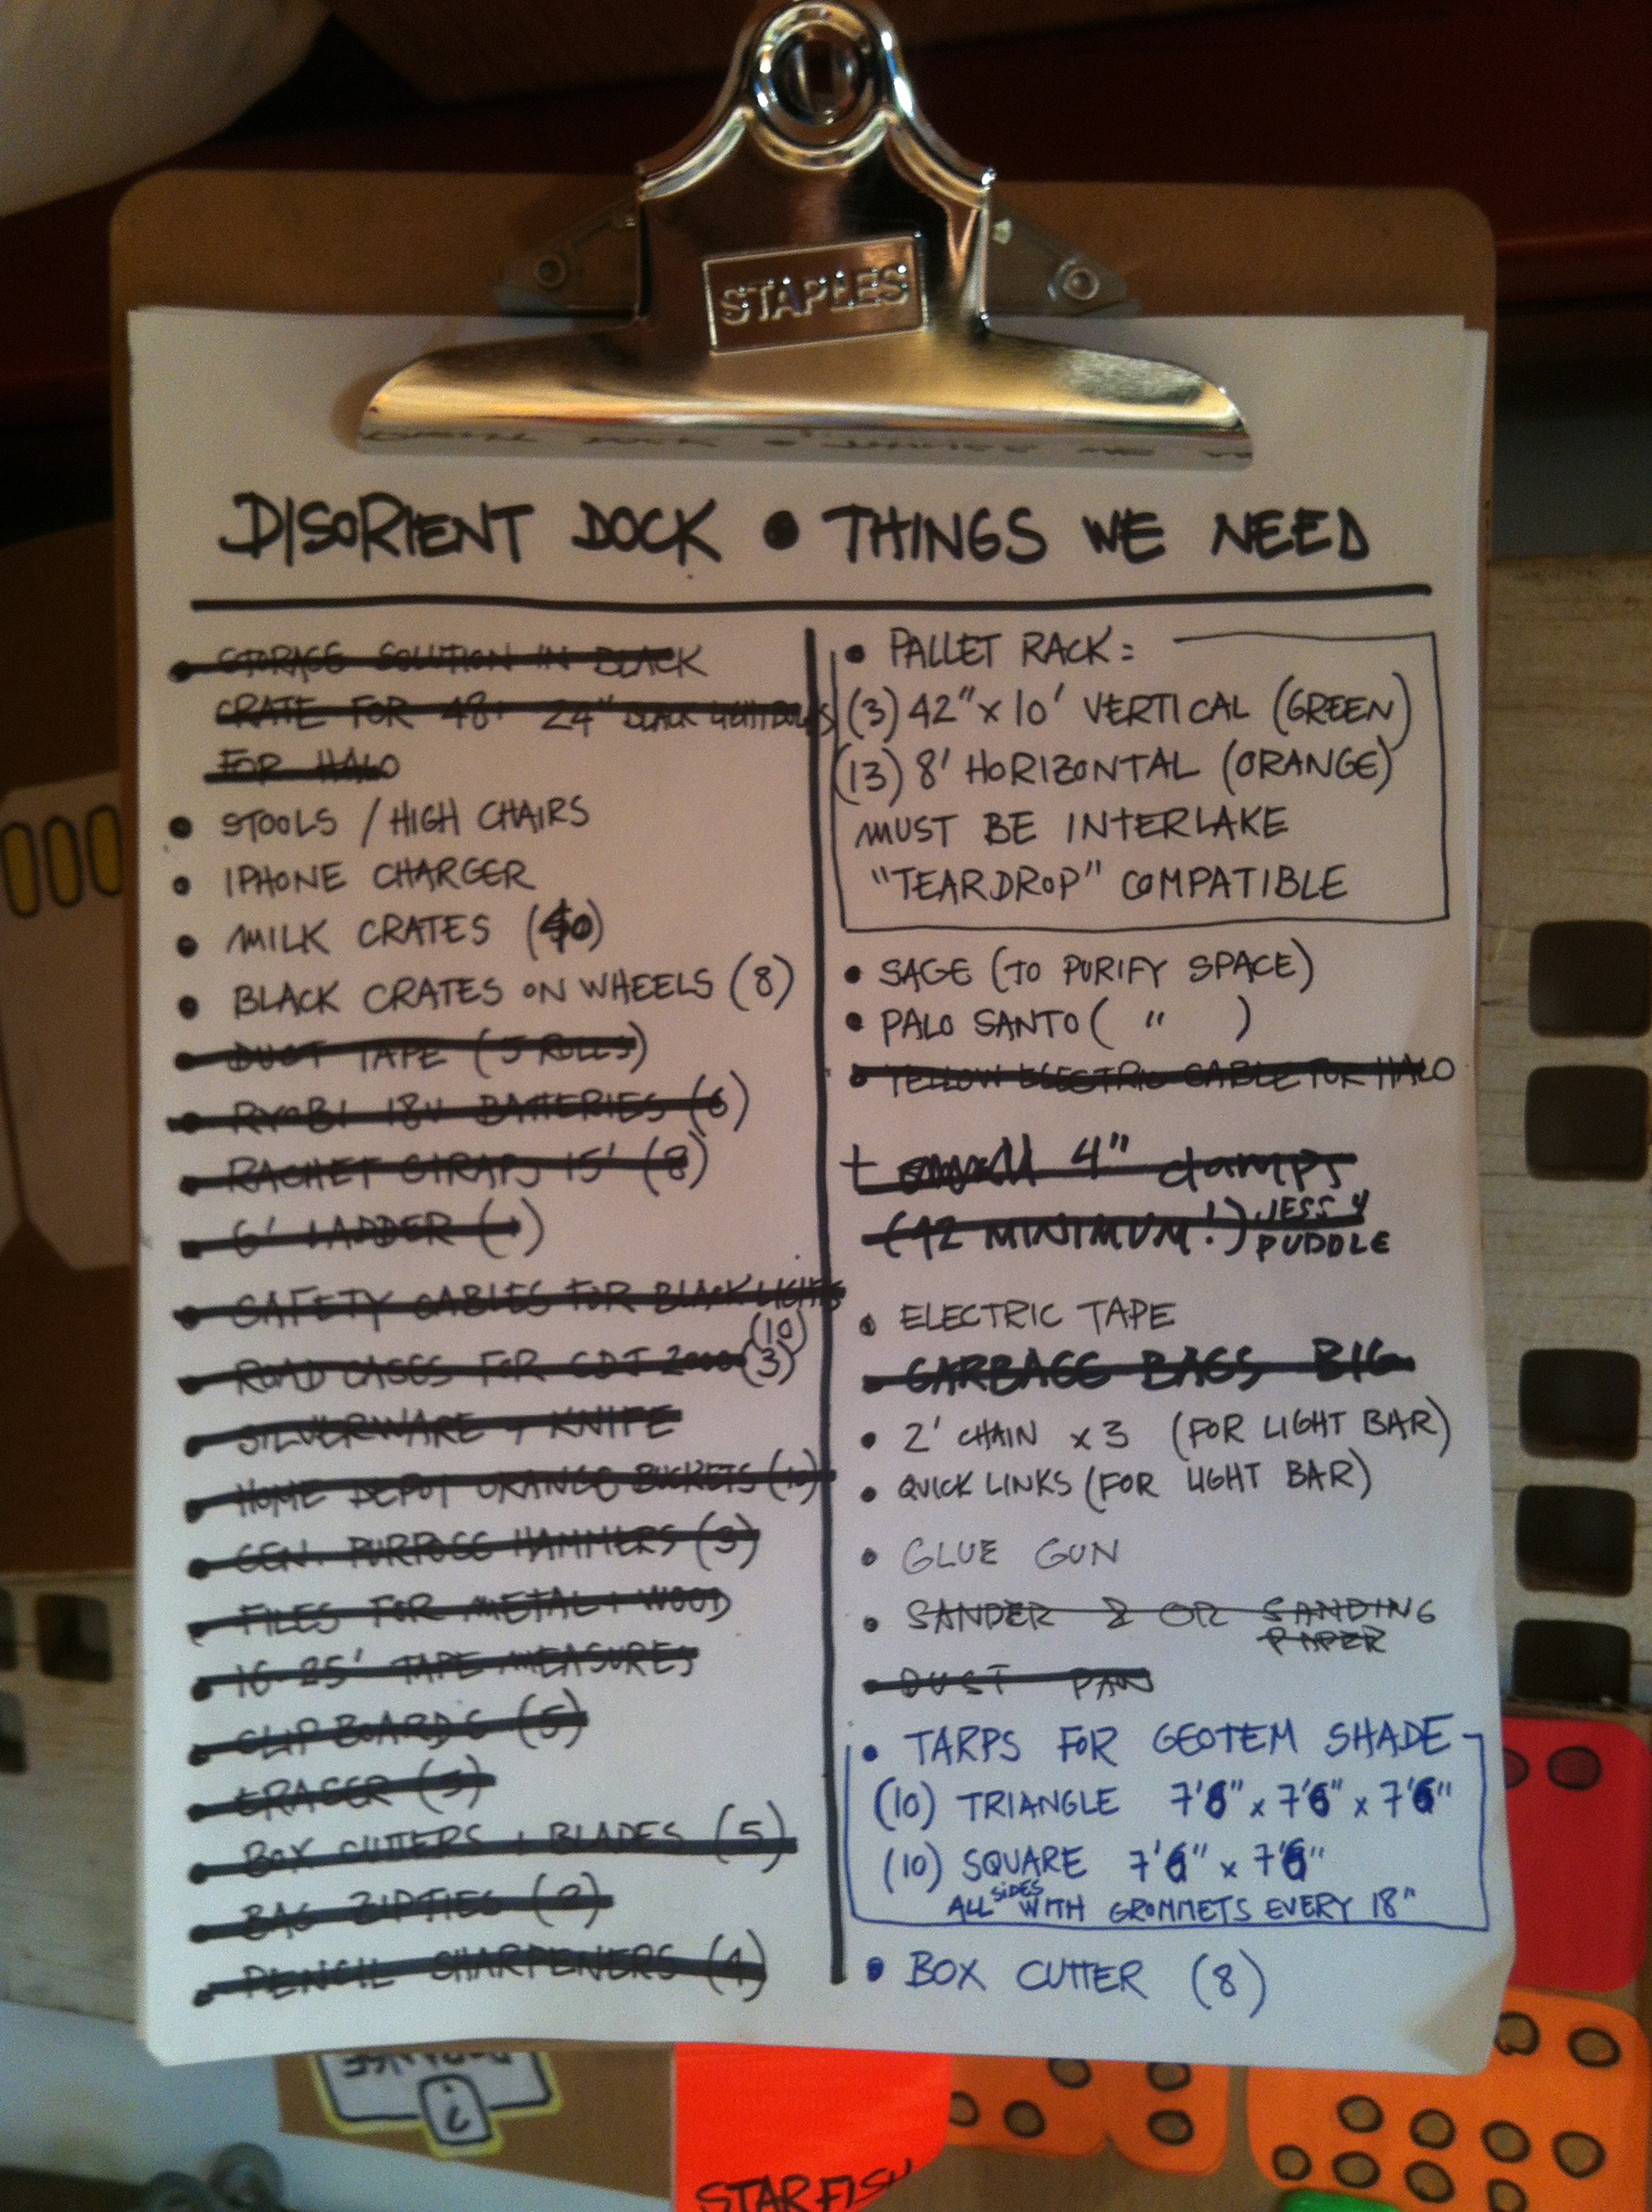 STAPLES
DISORIENT DOCK • THINGS WE NEED
• STORAGE SOLUTION IN BLACK
CRATE FOR 48+ 24" BLACK LIGHT BULBS
FOR HALO
• STOOLS / HIGH CHAIRS
• IPHONE CHARGER
• MILK CRATES (40)
• BLACK CRATES ON WHEELS (8)
• DUCT TAPE (5 ROLLS)
• RYOBI 18V BATTERIES (6)
• RACHET STRAPS 15' (8)
• 6' LADDER (1)
• SAFETY CABLES FOR BLACK LIGHTS
(10)
• ROAD CASES FOR CDJ 2000 (3)
• SILVERWARE + KNIFE
• HOME DEPOT ORANGE BUCKETS (10)
• GEN. PURPOSE HAMMERS (3)
• FILES FOR METAL + WOOD
• 16-25' TAPE MEASURES
• CLIPBOARDS (5)
• ERASER (5)
• BOX CUTTERS + BLADES (5)
• BAG ZIPTIES (2)
• PENCIL SHARPENERS (4)
• PALLET RACK =
(3) 42" x 10' VERTICAL (GREEN)
(13) 8' HORIZONTAL (ORANGE)
MUST BE INTERLAKE
"TEARDROP" COMPATIBLE
• SAGE (TO PURIFY SPACE)
• PALO SANTO ( " )
• YELLOW ELECTRIC CABLE FOR HALO
+ small 4" clamps
(42 MINIMUM!) JESS 4
PUDDLE
• ELECTRIC TAPE
• GARBAGE BAGS BIG
• 2' CHAIN x 3 (FOR LIGHT BAR)
• QUICK LINKS (FOR LIGHT BAR)
• GLUE GUN
• SANDER & OR SANDING
PAPER
• DUST PAN
• TARPS FOR GEOTEM SHADE
(10) TRIANGLE 7'6" x 7'6" x 7'6"
(10) SQUARE 7'6" x 7'6"
ALL SIDES WITH GROMMETS EVERY 18"
• BOX CUTTER (8)
STARFISH